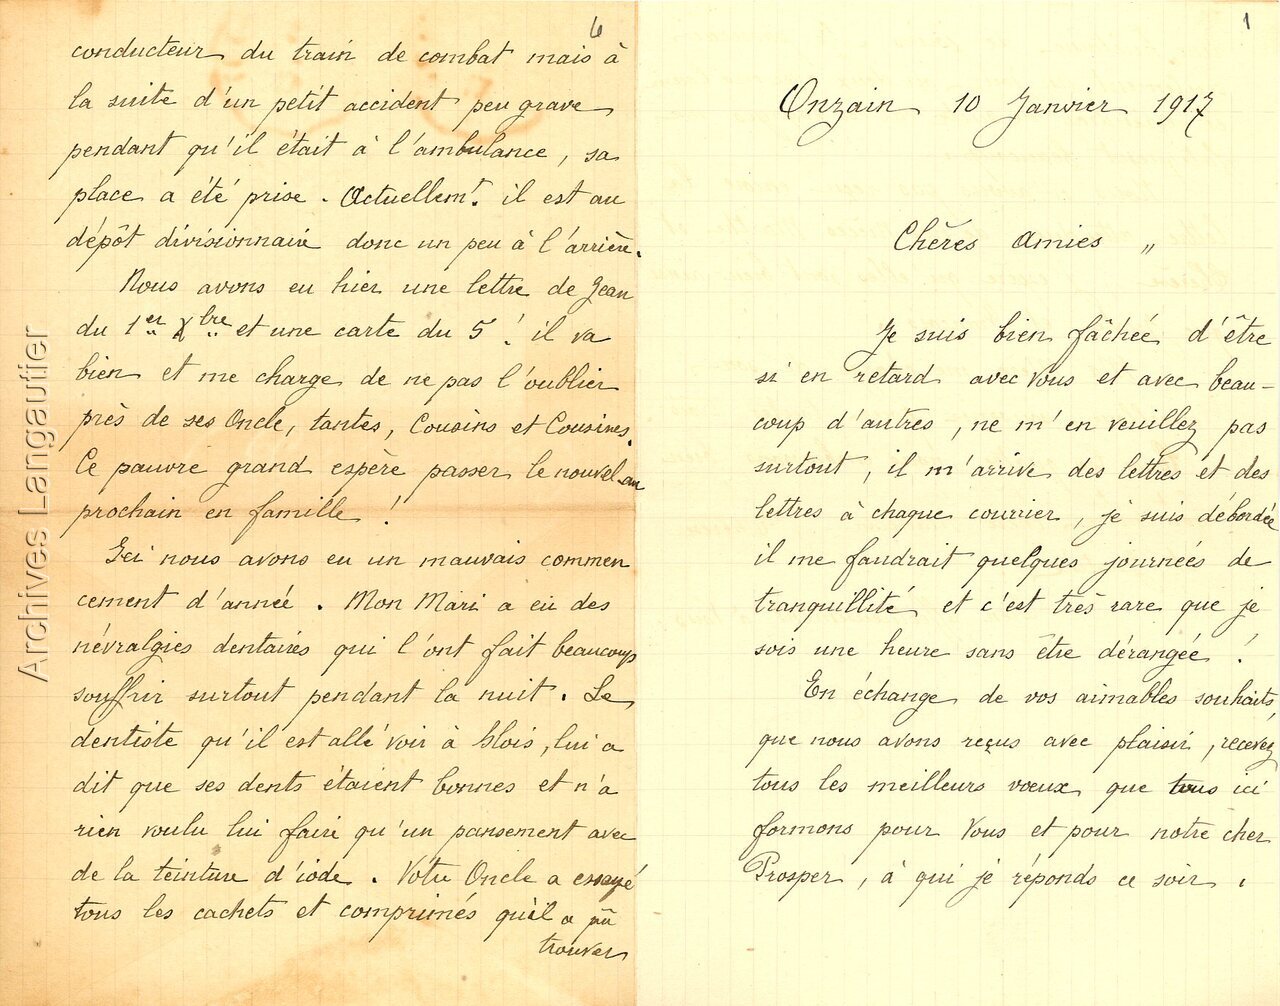 6
conducteur du train de combat mais à
la suite d'un petit accident peu grave
pendant qu'il était à l'ambulance, sa
place a été prise. Actuellemt. il est au
dépôt divisionnaire donc un peu à l'arrière.
Nous avons eu hier une lettre de Jean
du 1er Xbre et une carte du 5! il va
bien et me charge de ne pas l'oublier
près de ses Oncle, tantes, Cousins et Cousines.
Ce pauvre grand espère passer le nouvel an
prochain en famille!
Ici nous avons eu un mauvais commen
cement d'année. Mon Mari a eu des
névralgies dentaires qui l'ont fait beaucoup
souffrir surtout pendant la nuit. Le
dentiste qu'il est allé voir à blois, lui a
dit que ses dents étaient bonnes et n'a
rien voulu lui faire qu'un pansement avec
de la teinture d'iode. Votre Oncle a essayé
tous les cachets et comprimés qu'il a pû
trouver
1
Onzain 10 Janvier 1917
Chères Amies "
Je suis bien fâchée d'être
si en retard avec vous et avec beau-
coup d'autres, ne m'en veuillez pas
surtout, il m'arrive des lettres et des
lettres à chaque courrier, je suis débordée
il me faudrait quelques journées de
tranquillité et c'est très rare que je
sois une heure sans être dérangée!
En échange de vos aimables souhaits,
que nous avons reçus avec plaisir, recevez
tous les meilleurs vœux que tous ici
formons pour Vous et pour notre cher
Prosper, à qui je réponds ce soir.
Archives Langautier